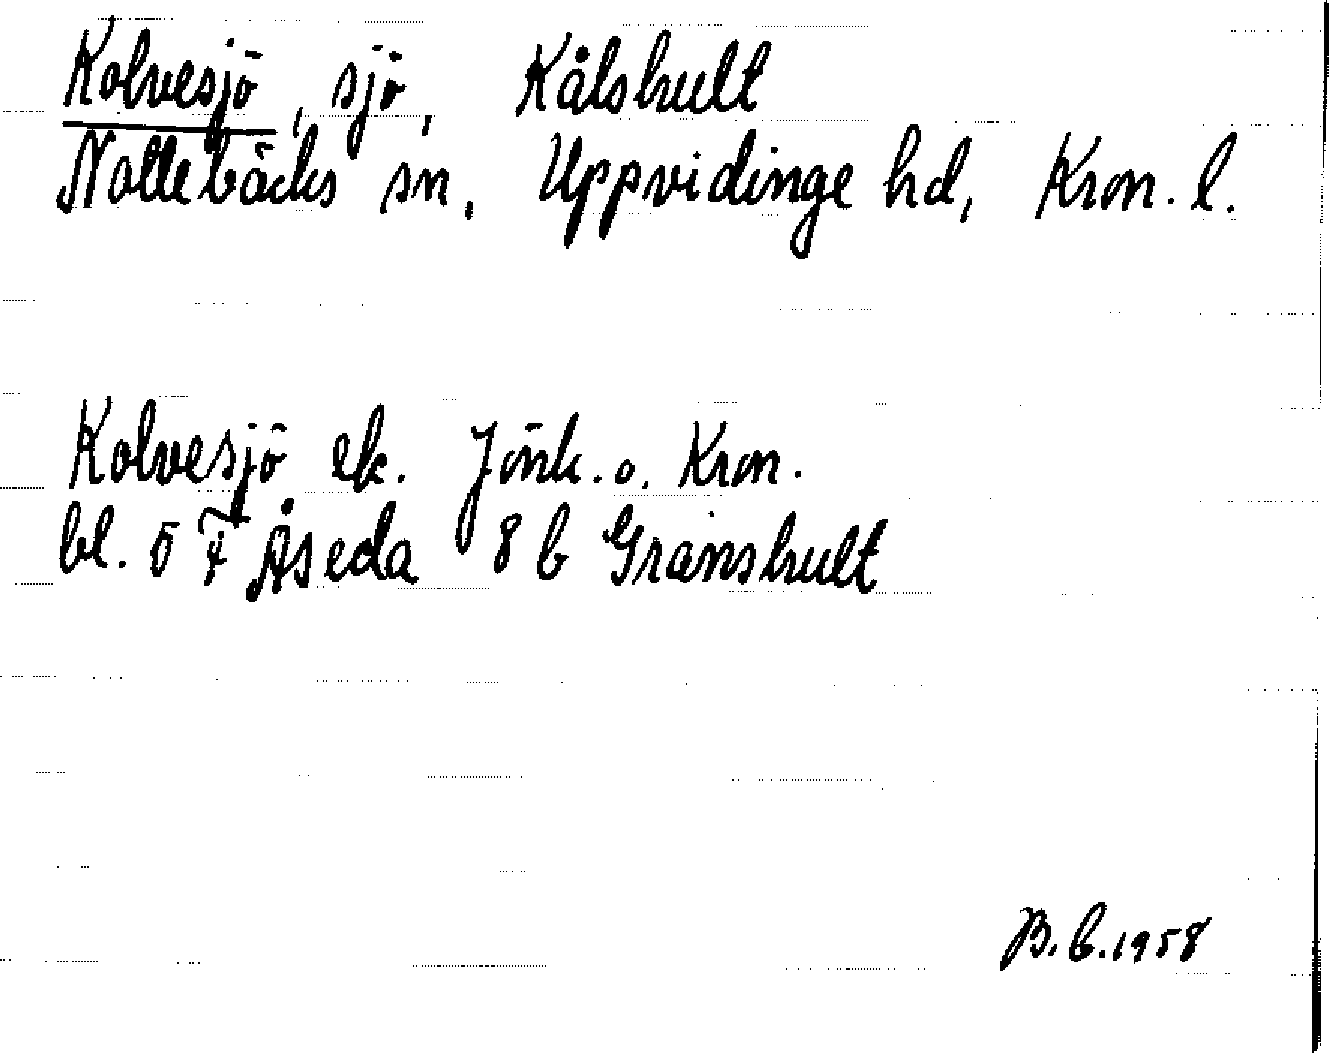 Kolvesjö, sjö, Kålshult
Nottebäcks sn, Uppvidinge hd, Kron. l.
Kolvesjö ek. Jönk. o. Kron.
bl. 5 F Åseda 8 b Gränshult
B. C. 1958